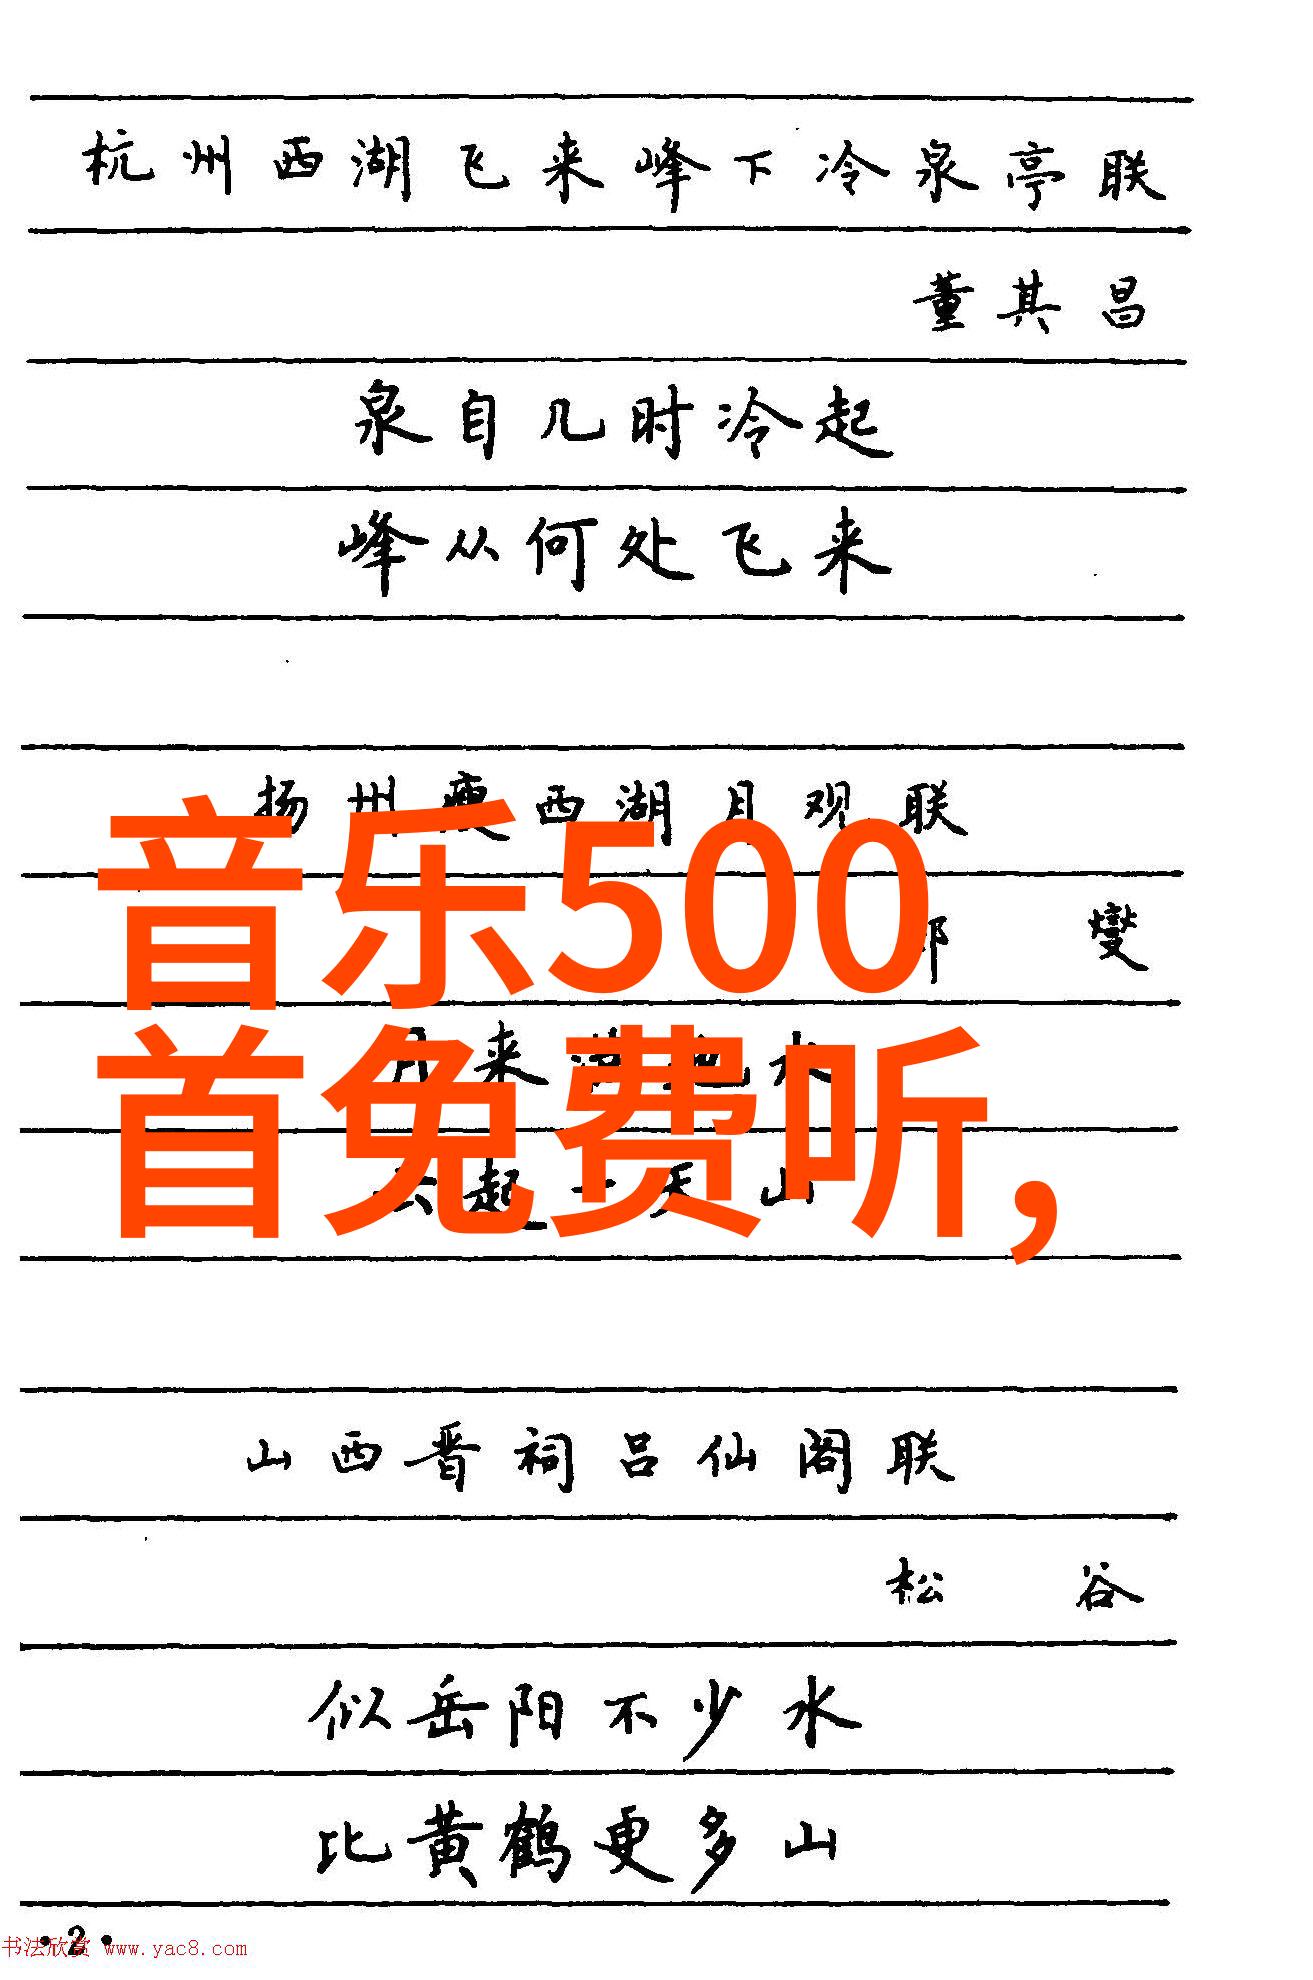 杭州西湖飞来峰下冷泉亭联
董其昌
泉自几时冷起
峰从何处飞来
扬州瘦西湖月观联
音乐500
燮
月来满地水
首免费听,
云起一天山
山西晋祠吕仙阁联
松谷
似岳阳不少水
比黄鹤更多山
·2·
书法欣赏 www.yac8.com